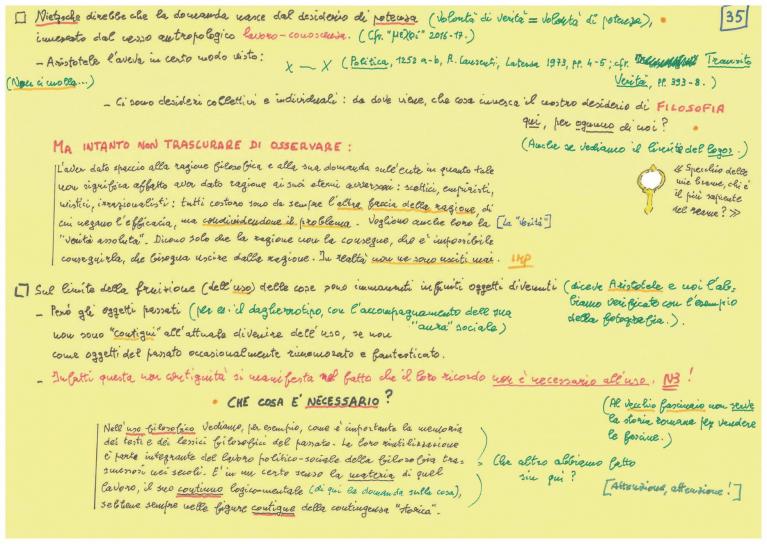 35
□ Nietzsche direbbe che la domanda nasce dal desiderio di potenza (Volontà di verità = volontà di potenza),
innescato dal nesso antropologico lavoro-conoscenza. (Cfr. "Me)Xi" 2016-17.)
– Aristotele l'aveva in certo modo visto: X — X (Politica, 1252 a-b, R. Laurenti, Laterza 1973, pp. 4-5; cfr. Transito
Verità, pp. 393-8.)
(Non ci molla...)
– Ci sono desideri collettivi e individuali: da dove viene, che cosa innesca il nostro desiderio di FILOSOFIA
qui, per ognuno di noi?
(Anche se vediamo il limite del logos.)
MA INTANTO NON TRASCURARE DI OSSERVARE:
L'aver dato spaccio alla ragione filosofica e alla sua domanda sull'ente in quanto tale
non significa affatto aver dato ragione ai suoi eterni avversari: scettici, empiristi,
mistici, irrazionalisti: tutti costoro sono da sempre l'altra faccia della ragione, di
cui negano l'efficacia, ma condividendone il problema. Vogliono anche loro la [la "Verità"]
"verità assoluta". Dicono solo che la ragione non la consegue, che è impossibile
conseguirla, che bisogna uscire dalla ragione. In realtà non ne sono usciti mai. IMP
« Specchio delle
mie brame, chi è
il più sapiente
del reame? »
□ Sul limite della fruizione (dell'uso) delle cose sono immanenti infiniti oggetti divenuti (diceva Aristotele e noi l'ab-
biamo verificato con l'esempio
della fotografia.).
– Però gli oggetti passati (per es. il dagherrotipo, con l'accompagnamento della sua
"aura" sociale)
non sono "contigui" all'attuale divenire dell'uso, se non
come oggetti del passato occasionalmente rimemorato e fantasticato.
– Infatti questa non contiguità si manifesta nel fatto che il loro ricordo non è necessario all'uso. NB!
• CHE COSA E' NECESSARIO?
(Al vecchio fascinaio non serve
la storia romana per vendere
le fascine.)
Nell'uso filosofico vediamo, per esempio, come è importante la memoria
dei testi e dei lessici filosofici del passato. La loro riutilizzazione
è parte integrante del lavoro politico-sociale della filosofia tra-
smessosi nei secoli. E' in un certo senso la materia di quel
lavoro, il suo continuo logico-mentale (di qui la domanda sulla cosa),
sebbene sempre nelle figure contigue della contingenza "storica".
Che altro abbiamo fatto
sin qui?
[Attenzione, attenzione!]